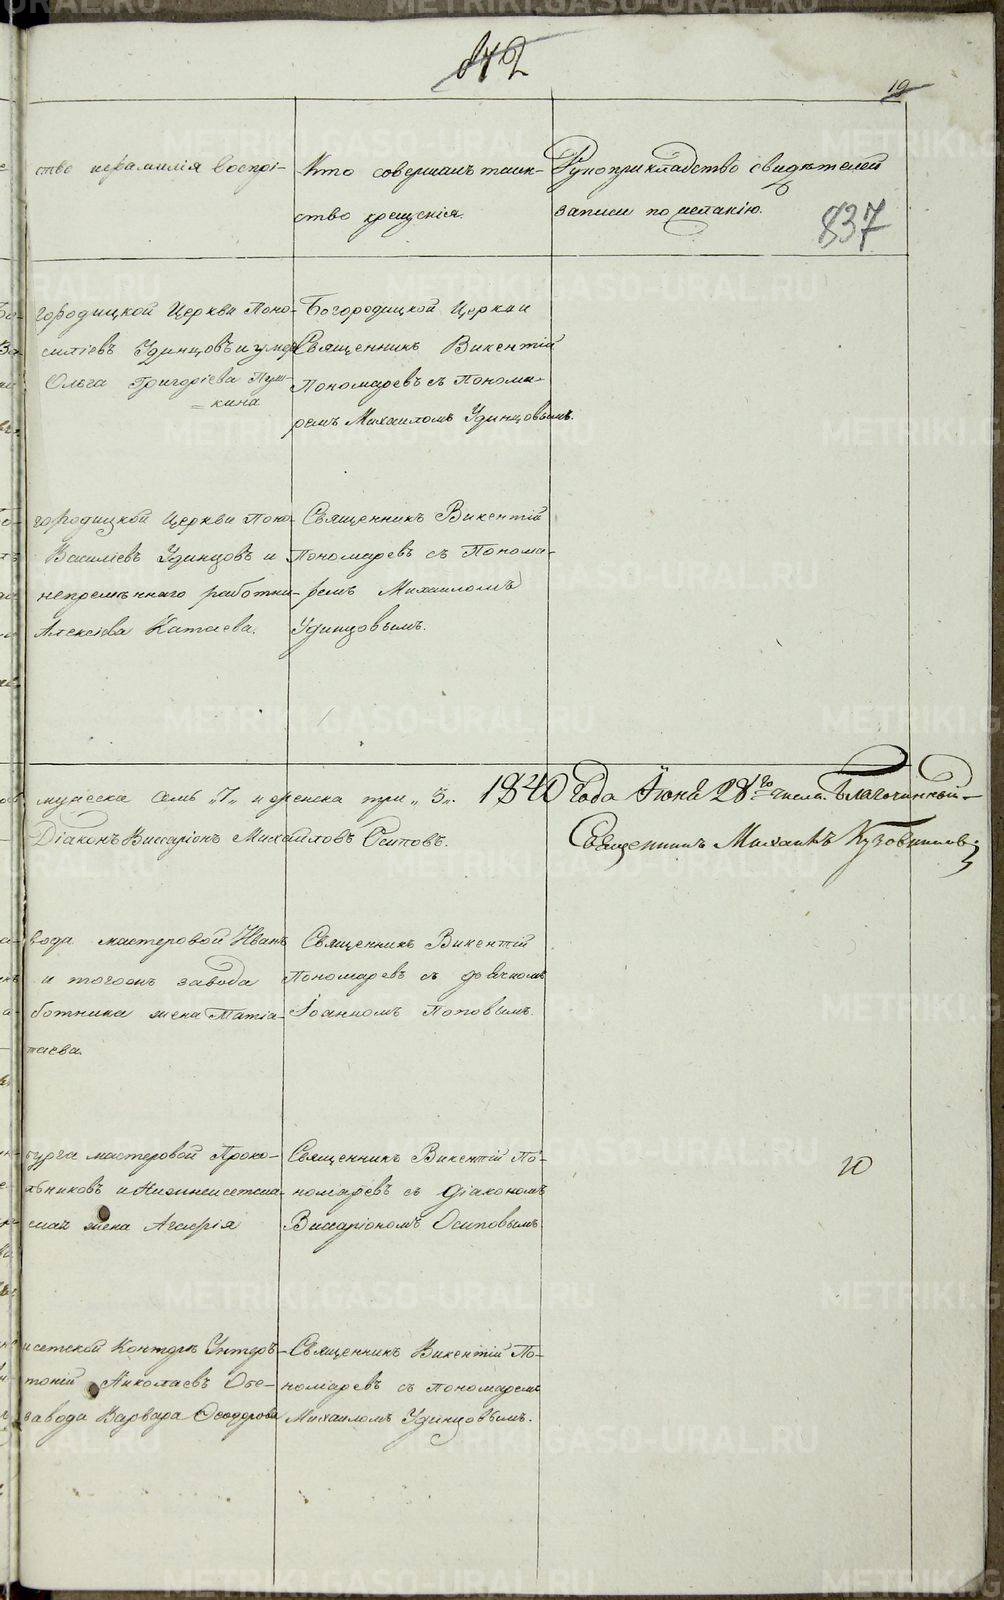 842
19
ство и фамилія воспрі-
Кто совершалъ таин-
ство крещенія.
Рукоприкладство свидѣтелей
записи по желанію.
837
городицкой Церкви Поно-
силіевъ Удинцовъ и умер
Ольга Григоріева Пуш-
=кина
Богородицкой Церкви
Священникъ Викентій
Пономаревъ съ Понома-
ремъ Михаиломъ Удинцовымъ.
городицкой Церкви Поно
Василіевъ Удинцовъ и
непремѣннаго работни-
Алексіева Катаева.
Священникъ Викентій
Пономаревъ съ Понома-
ремъ Михаиломъ
Удинцовымъ.
мужеска семь „7„ и женска три „3„.
Діаконъ Виссаріонъ Михайловъ Осиповъ.
1840 года Іюня 28го числа Благочинный
Священникъ Михаилъ
вода мастеровой Иванъ
и тогожъ завода
ботника жена Татіа-
таева.
Священникъ Викентій
Пономаревъ съ дьячкомъ
Іоанномъ Поповымъ.
бурга мастеровой Проко-
льниковъ и Нижнеисетска-
жена
Священникъ Викентій По-
номаревъ съ діакономъ
Виссаріономъ Осиповымъ.
10
исетской Конторы Унтеръ-
Николаевъ
завода Варвара Ѳеодорова
Священникъ Викентій По-
номаревъ съ пономаремъ
Михаиломъ Удинцовымъ.
METRIKI.GASO-URAL.RU